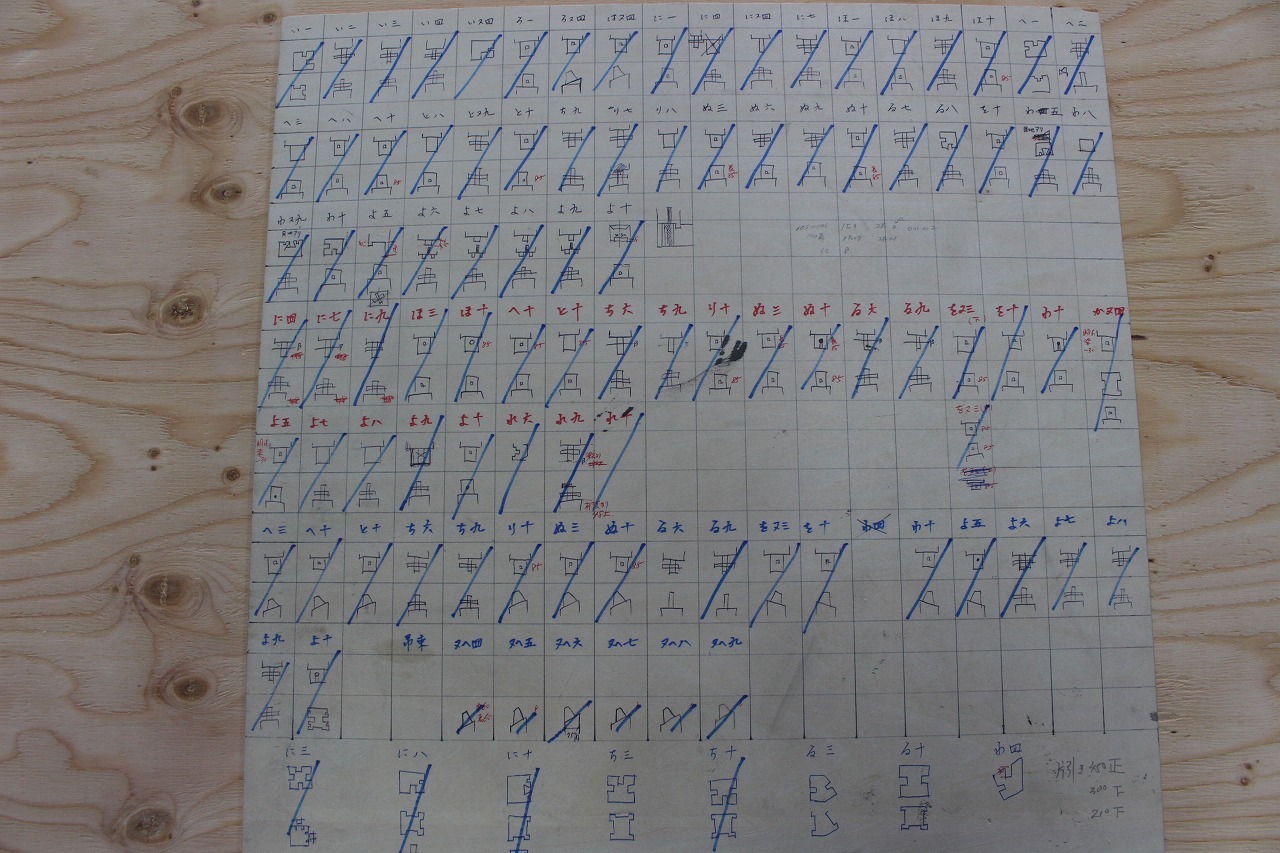 い一 い二 い三 い四 い又四 ろ一 ろ又四 は又四 に一 に四 に又四 に七 ほ一 ほ八 ほ九 ほ十 へ一 へ二
85
へ三 へ八 へ十 と八 と又九 と十 ち九 り七 り八 ぬ三 ぬ六 ぬ九 ぬ十 る七 る八 を十 わ五 わ八
85 85 85 85
わ又九 わ十 よ五 よ六 よ七 よ八 よ九 よ十
に四 に七 に九 ほ三 ほ十 へ十 と十 ち六 ち九 り十 ぬ三 ぬ十 る六 る九 を又三 を十 わ十 か又四
85 85 85 85
85 85 85
よ五 よ七 よ八 よ九 よ十 れ六 れ九 れ十 を又三
85
85
へ三 へ十 と十 ち六 ち九 り十 ぬ三 ぬ十 る六 る九 を又三 を十 わ四 わ十 よ五 よ六 よ七 よ八
85 85
よ九 よ十 吊束 又へ四 又へ五 又へ六 又へ七 又へ八 又へ九
に三 に八 に十 ち三 ち十 る三 る十 わ四
450 正
300 下
210 下